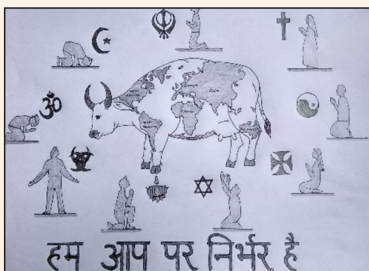 हम आप पर निर्भर है